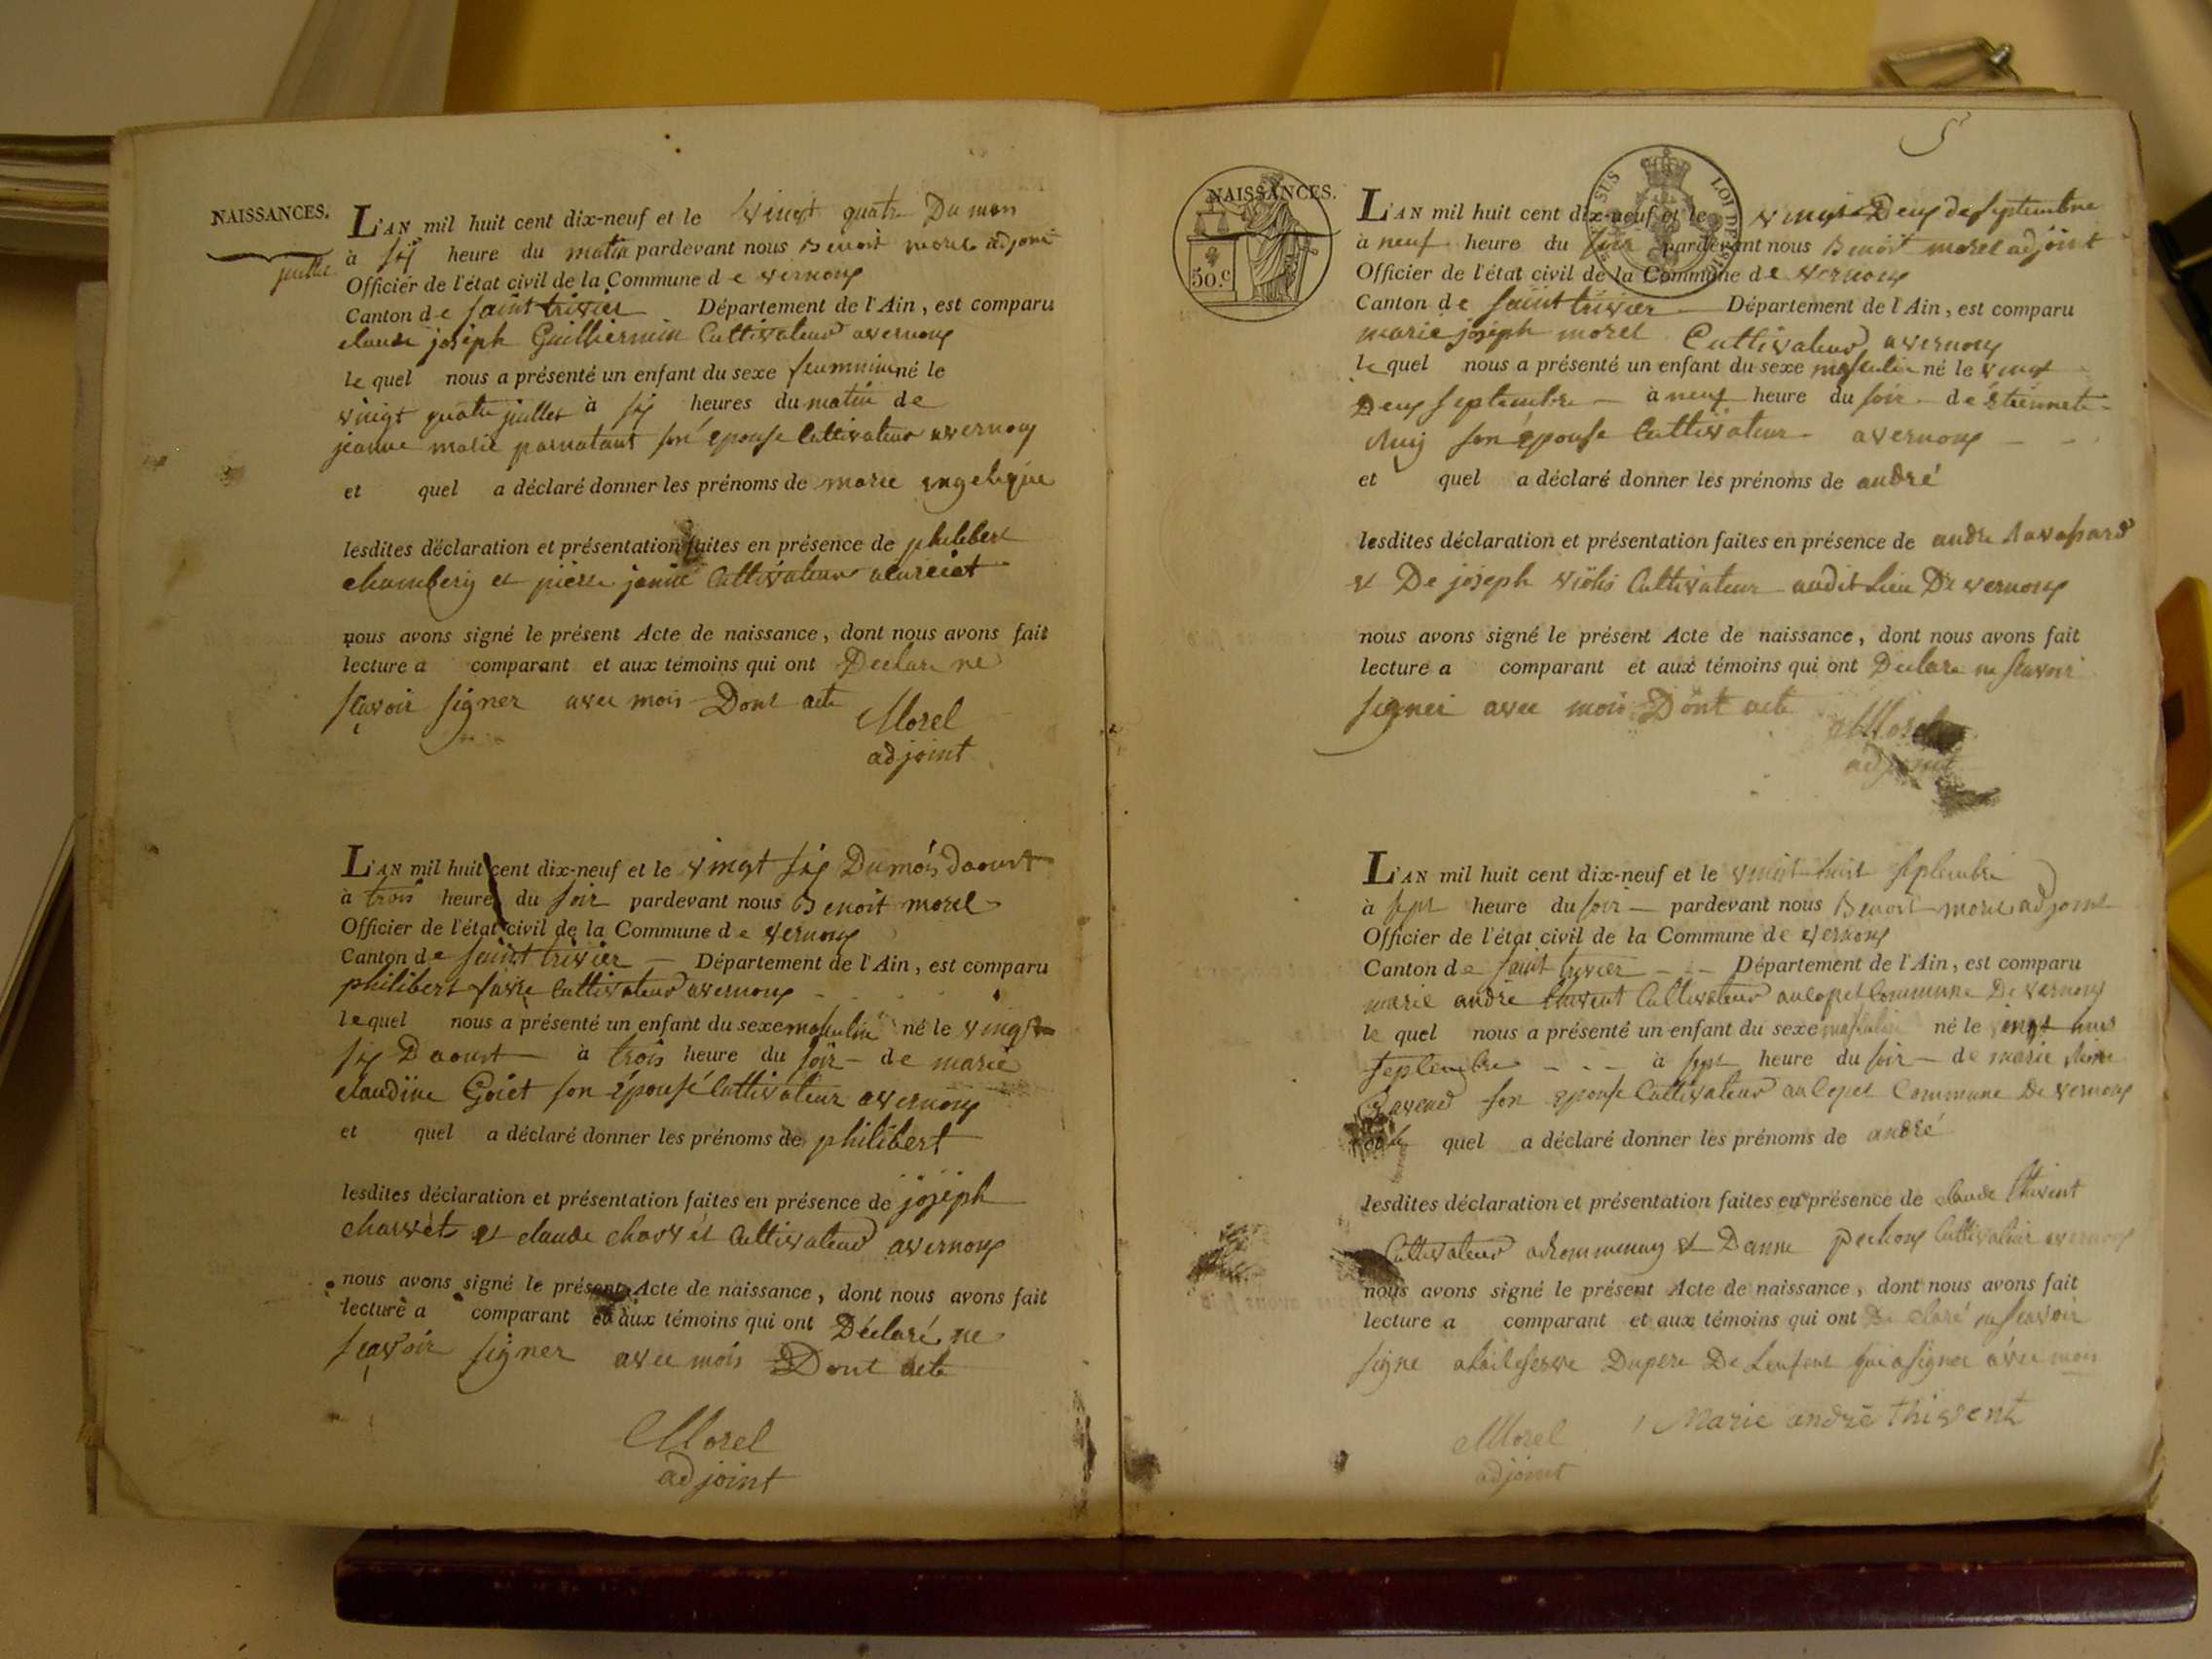 NAISSANCES.
juillet
L'AN mil huit cent dix-neuf et le vingt quatre Du mon
à six heure du matin pardevant nous Benoit morel adjoint
Officier de l'état civil de la Commune de vernoux
Canton de saint trivier Département de l'Ain, est comparu
claude joseph Guilliermin Cultivateur avernoux
le quel nous a présenté un enfant du sexe né le
vingt quatre juillet à six heures du matin de
jeanne marie son épouse Cultivateur avernoux
et quel a déclaré donner les prénoms de marie angelique
lesdites déclaration et présentation faites en présence de philibert
chambery et pierre Cultivateur acurciat
nous avons signé le présent Acte de naissance, dont nous avons fait
lecture a comparant et aux témoins qui ont Declare ne
scavoir signer avec mois Dont acte
Morel
adjoint
L'AN mil huit cent dix-neuf et le vingt six Du mois daoust
à trois heure du soir pardevant nous Benoit morel
Officier de l'état civil de la Commune de vernoux
Canton de saint trivier Département de l'Ain, est comparu
philibert favre Cultivateur avernoux
le quel nous a présenté un enfant du sexe masculin né le vingt
six Daoust à trois heure du soir de marie
claudine Goiet son épouse Cultivateur avernoux
et quel a déclaré donner les prénoms de philibert
lesdites déclaration et présentation faites en présence de joseph
charvet et claude charvet Cultivateur avernoux
nous avons signé le présent Acte de naissance, dont nous avons fait
lecture a comparant et aux témoins qui ont Déclaré ne
scavoir signer avec mois Dont acte
Morel
adjoint
5
NAISSANCES.
50.c
SUS LOI DE 1816
L'AN mil huit cent dix-neuf et le vingt Deux de septembre
à neuf heure du soir pardevant nous Benoit morel adjoint
Officier de l'état civil de la Commune de vernoux
Canton de saint trivier Département de l'Ain, est comparu
marie joseph morel Cultivateur avernoux
le quel nous a présenté un enfant du sexe masculin né le vingt
Deux septembre à neuf heure du soir de étiennete
son épouse Cultivateur avernoux
et quel a déclaré donner les prénoms de andré
lesdites déclaration et présentation faites en présence de andre
et De joseph Cultivateur audit Lieu De vernoux
nous avons signé le présent Acte de naissance, dont nous avons fait
lecture a comparant et aux témoins qui ont Declare ne scavoir
signer avec mois Dont acte
Morel
adjoint
L'AN mil huit cent dix-neuf et le vingt huit septembre
à sept heure du soir pardevant nous Benoit morel adjoint
Officier de l'état civil de la Commune de vernoux
Canton de saint trivier Département de l'Ain, est comparu
marie andré thivent Cultivateur aulopet Commune De vernoux
le quel nous a présenté un enfant du sexe masculin né le vingt huit
septembre à sept heure du soir de marie
son epouse Cultivateur aulopet Commune De vernoux
et le quel a déclaré donner les prénoms de andré
lesdites déclaration et présentation faites en présence de claude thivent
Cultivateur aRommenay et Danne Cultivateur avernoux
nous avons signé le présent Acte de naissance, dont nous avons fait
lecture a comparant et aux témoins qui ont De claré ne scavoir
signe Dupere De Lenfent qui a signer avec mois
Marie andre thivent
Morel
adjoint